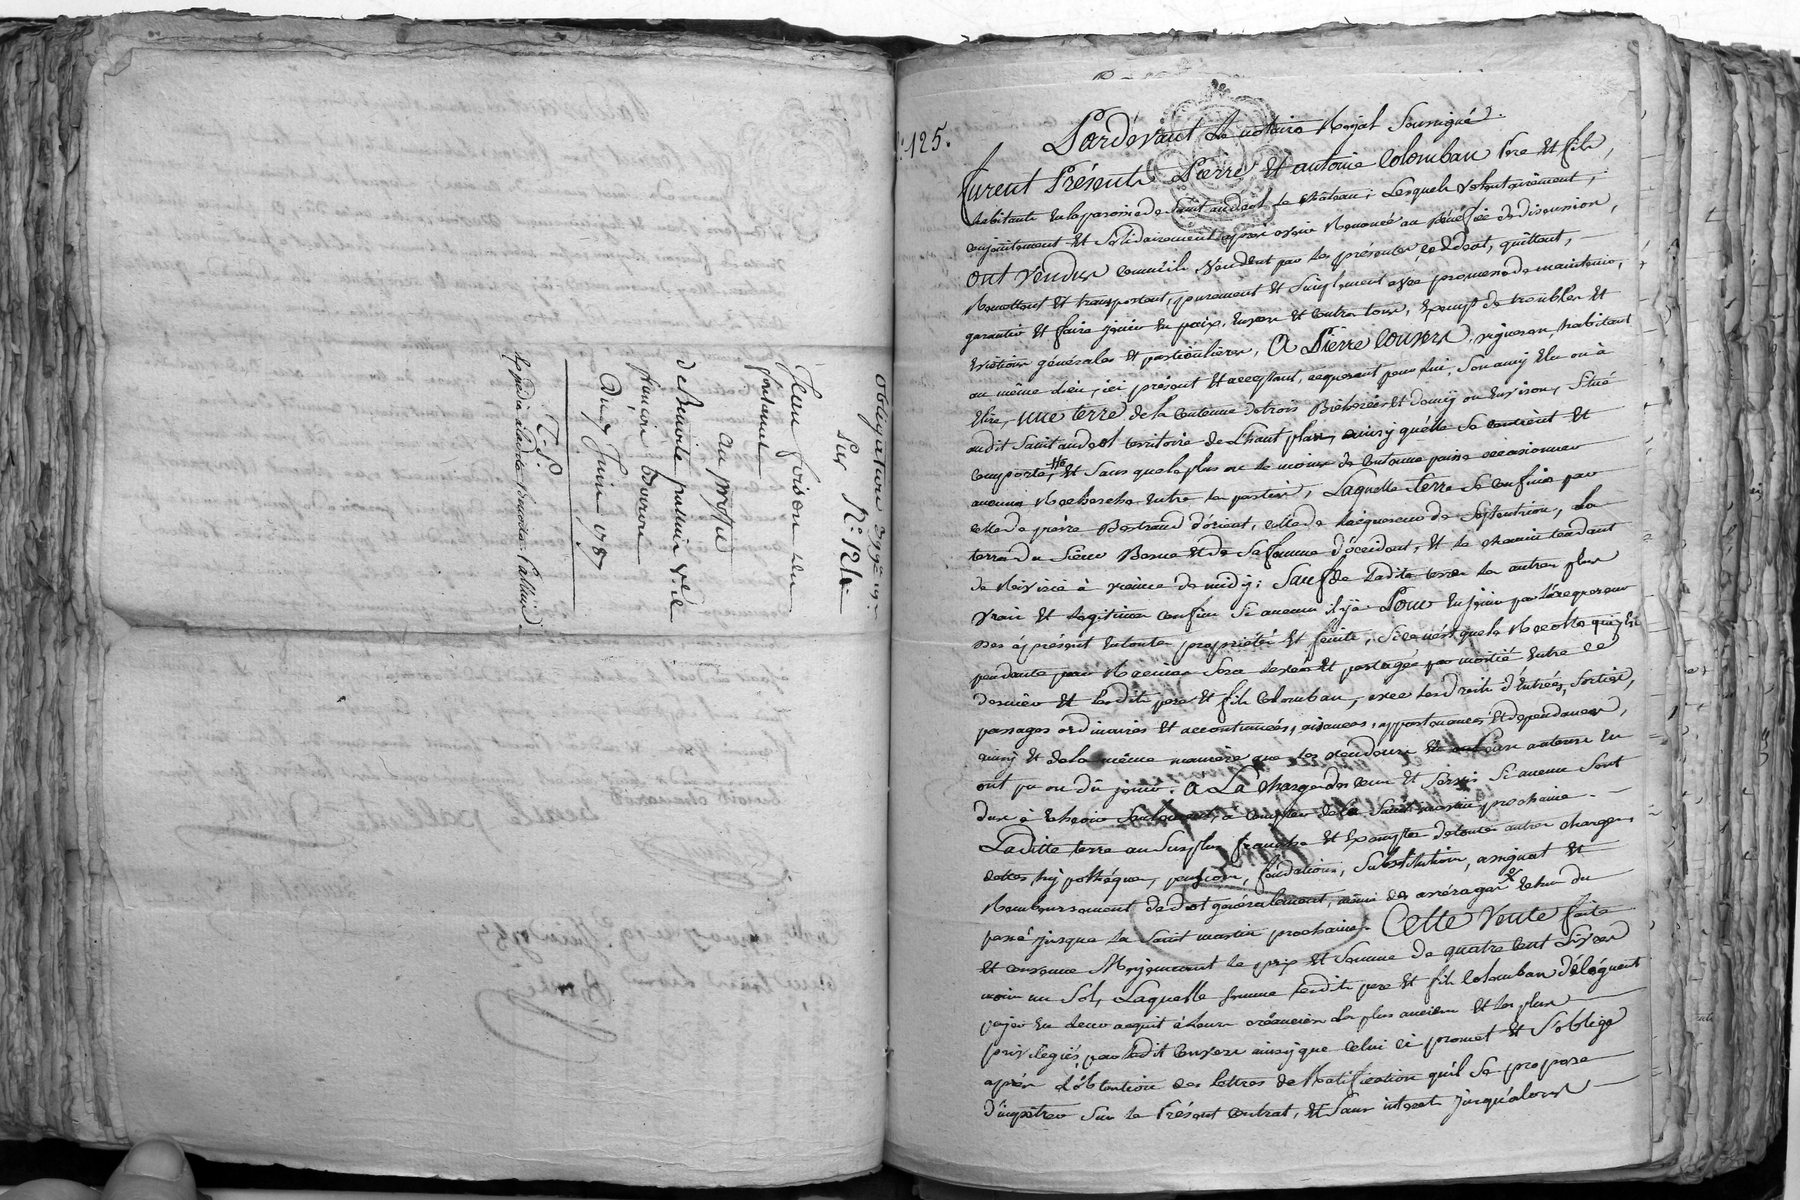 obligation
Sur N.° 124
Jean foison dit
fontanet
au proffit
de Benoite palluis v.e de
françois bouvon
du 7 Juin 1787
T. S.
Expedié à ladite benoite Palluis
N.° 125.
Pardevant Le notaire Royal Soussigné.
furent Présents Pierre Et antoine Colomban Pere Et fils,
habitants En la paroisse de Saint andeol le château; Lesquels volontairement,
conjointement Et Solidairement après avoir Renoncé au Bénéfice de discussion,
ont vendus comme ils vendent par les présentes, cedent, quittent,
Remettent Et transportent, purement Et Simplement avec promesse de maintenir,
garantir Et faire jouir En paix, Envers Et Contre tous, Exempt de troubles Et
Evictions générales Et particulières, A Pierre Couvers, vigneron, habitant
au même lieu, ici présent Et acceptant, acquerant pour lui, Son amy Elu ou à
Elire, une terre de la Contenue de trois Bicherées Et demy ou Environ, Situé
audit Saint andeol territoire de L'haut plan, ainsy quelle Se contient Et
Comporte, Et Sans que le plus ou le moins de Contenue puisse occasionner
aucunes Recherches Entre les parties, Laquelle terre Se confine par
celle de pierre Bertrand d'orient, celle de Lacquereur de Septentrion, La
terre du Sieur Besme Et de Sa femme d'occident, Et le chemin tendant
de Rivirie à vienne de midy; Sauf de Ladite terre Les autres plus
vrais Et Legitimes confins Si aucuns il y a Pour En jouir par Lacquereur
des à présent En toute propriété Et fruits, Si ce n'est que la Recolte qui y est
pendante Sera Levée Et partagée par moitié Entre ce
dernier Et Lesdits pere Et fils Colomban, avec Les droits d'Entrées, Sorties,
passages ordinaires Et accoutumées, aisances, appartenances Et dependances,
ainsy Et de la même maniere que les vendeurs Et auteurs En
ont pu ou dû jouir. A La Charge des cens Et Servis Si aucuns Sont
dus à Echeoir Seulement, à compter de la Saint martin prochaine.
Laditte terre au Surplus franche Et Exempte de toutes autres charges,
dettes, hypothéques, pensions, fondations, Substitution, assignat Et
Remboursement de dot généralement, même des arrérages Echus du
passé jusque La Saint martin prochaine. Cette vente faite
Et convenue Moyennant le prix Et Somme de quatre cent Livres
moins un Sol, Laquelle Somme Lesdits pere Et fils Colomban déléguent
payer En leur acquit à leurs créanciers Les plus anciens Et les plus
privilegiés, par Ledit Couvers ainsy que celui ci promet Et S'oblige
après L'obtention des Lettres de Ratification qu'il Se propose
d'impetrer Sur le Présent Contrat, Et Sans interet jusqu'alors